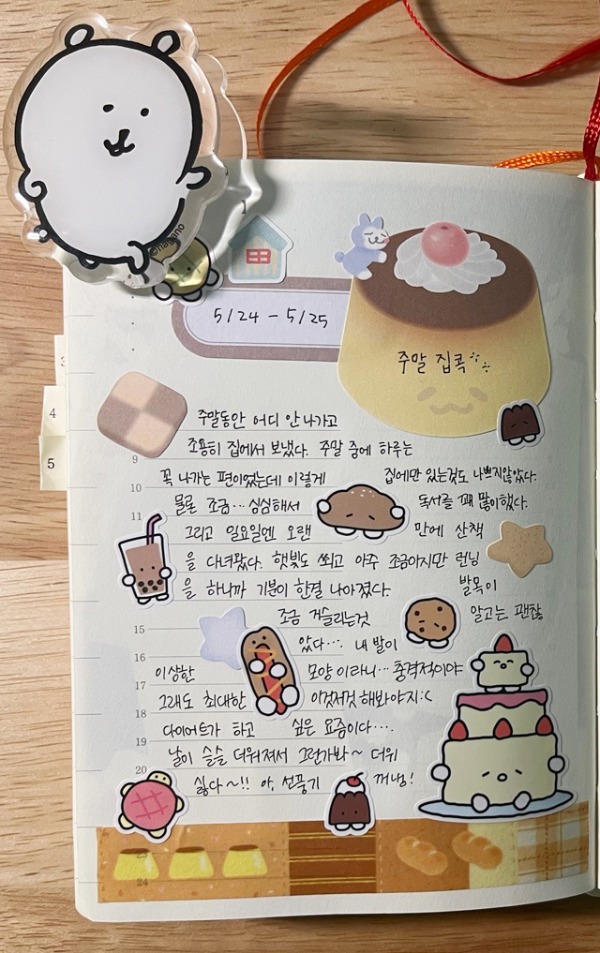 ©nagano
5/24 - 5/25
주말 집콕
주말동안 어디 안나가고
조용히 집에서 보냈다. 주말 중에 하루는
꼭 나가는 편이었는데 이렇게 집에만 있는것도 나쁘지않았다.
물론 조금... 심심해서 독서를 꽤 많이했다.
그리고 일요일엔 오랜 만에 산책
을 다녀왔다. 햇빛도 쐬고 아주 조금이지만 런닝
을 하니까 기분이 한결 나아졌다. 발목이
조금 거슬리는것 알고는 괜찮
았다... 내 발이
이상한 모양 이라니... 충격적이야
그래도 최대한 이것저것 해봐야지:(
다이어트가 하고 싶은 요즘이다....
날이 슬슬 더워져서 그런가봐~ 더위
싫다~!! 아, 선풍기 꺼냄!
4
5
9
10
11
12
13
15
16
17
18
19
20
23
24